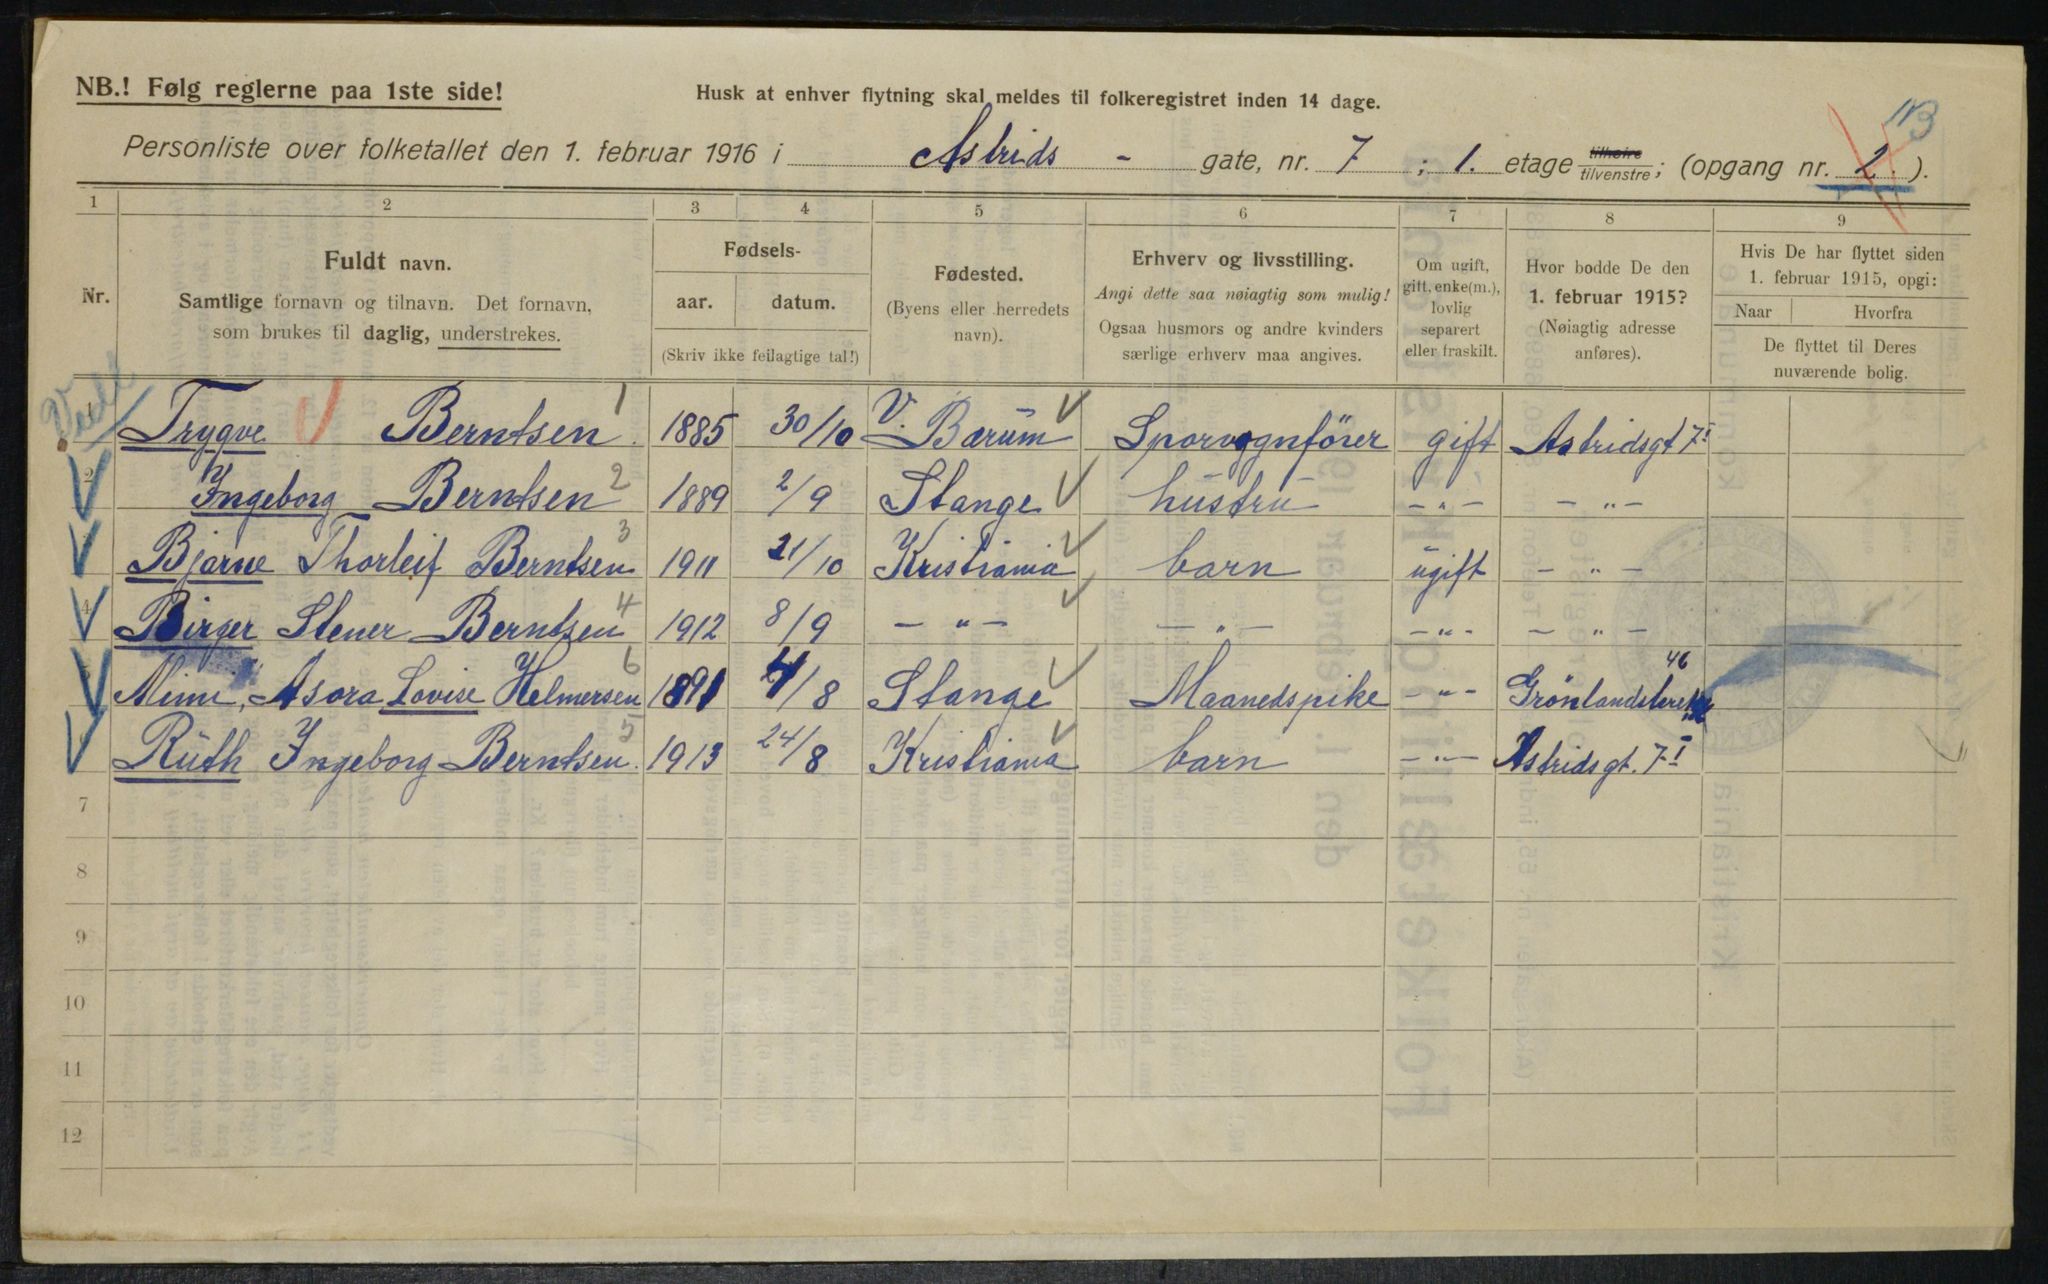 NB.! Følg reglerne paa 1ste side!
Husk at enhver flytning skal meldes til folkeregistret inden 14 dage.
Personliste over folketallet den 1. februar 1916 i Astrids - gate, nr. 7 ; 1. etage tilhøire tilvenstre; (opgang nr. 2.).
1 2 3 4 5 6 7 8 9
Nr.
Fuldt navn.
Samtlige fornavn og tilnavn. Det fornavn,
som brukes til daglig, understrekes.
Fødsels-
aar. datum.
(Skriv ikke feilagtige tal!)
Fødested.
(Byens eller herredets
navn).
Erhverv og livsstilling.
Angi dette saa nøiagtig som mulig!
Ogsaa husmors og andre kvinders
særlige erhverv maa angives.
Om ugift,
gift, enke(m.),
lovlig
separert
eller fraskilt.
Hvor bodde De den
1. februar 1915?
(Nøiagtig adresse
anføres).
Hvis De har flyttet siden
1. februar 1915, opgi:
Naar Hvorfra
De flyttet til Deres
nuværende bolig.
1 Trygve Berntsen 1 1885 30/10 V. Bærum Sporvognfører gift Astridsgt 7I
2 Ingeborg Berntsen 2 1889 2/9 Stange hustru - " - - " -
3 Bjarne Thorleif Berntsen 3 1911 21/10 Kristiania barn ugift - " -
4 Birger Stener Berntsen 4 1912 8/9 - " - - " - - " - - " -
5 Mimi, Asora Lovise Helmersen 6 1891 4/8 Stange Maanedspike - " - 46
6 Ruth Ingeborg Berntsen 5 1913 24/8 Kristiania barn - " - Astridsgt. 7I
7
8
9
10
11
12